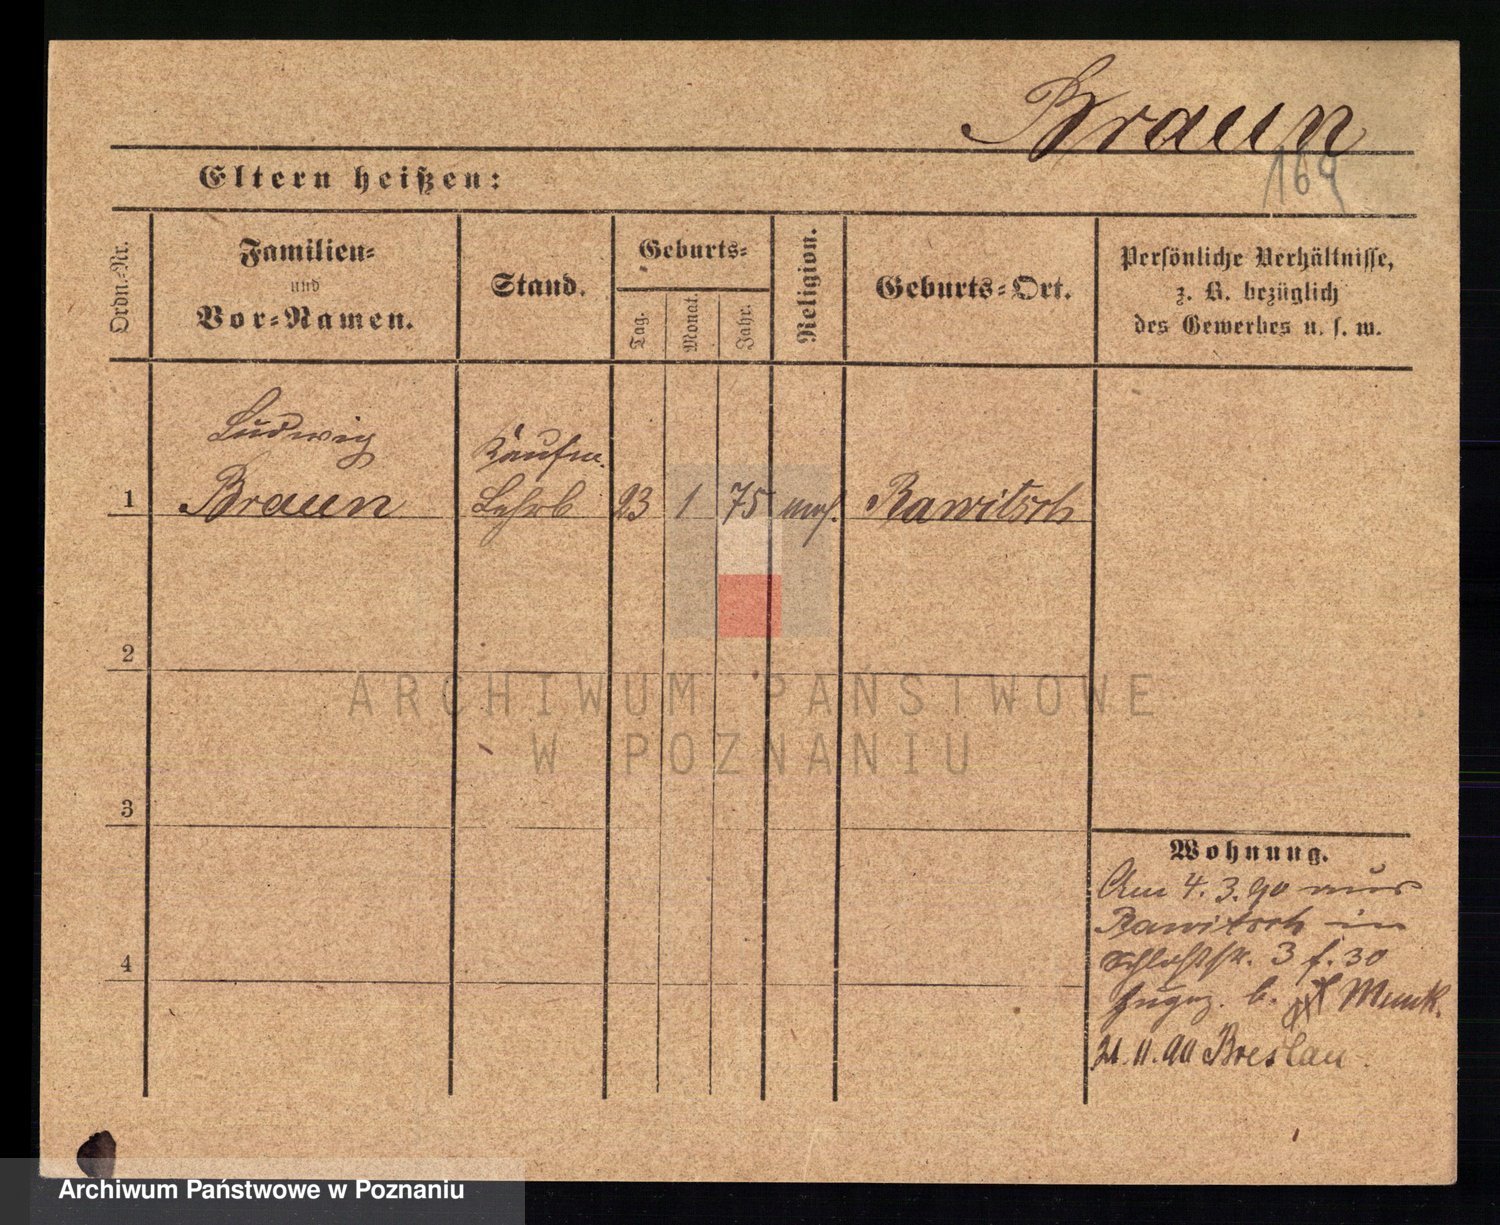 Braun
169
Eltern heißen:
Ordn.-Nr.
Familien-
und
Vor-Namen.
Stand.
Geburts-
Tag.
Monat.
Jahr.
Religion.
Geburts-Ort.
Persönliche Verhältnisse,
z. B. bezüglich
des Gewerbes u. s. w.
Ludwig
Kaufm.
1 Braun Lehrl 23 1 75 mos. Rawitsch
2
3
4
Wohnung.
Am 4. 3. 90 aus
Rawitsch in
3 f. 30
zugez. b. Munk.
21. 11. 90 Breslau
ARCHIWUM PAŃSTWOWE
W POZNANIU
Archiwum Państwowe w Poznaniu